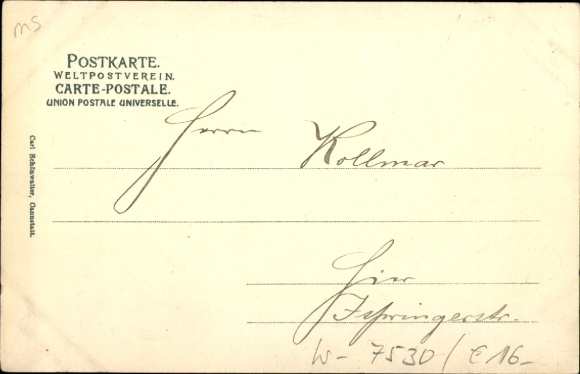 ms
POSTKARTE.
WELTPOSTVEREIN.
CARTE-POSTALE.
UNION POSTALE UNIVERSELLE.
Carl Schönwalter, Cannstatt.
Herrn Kollmar
Hier
Ispringerstr.
W- 7530 / € 16-